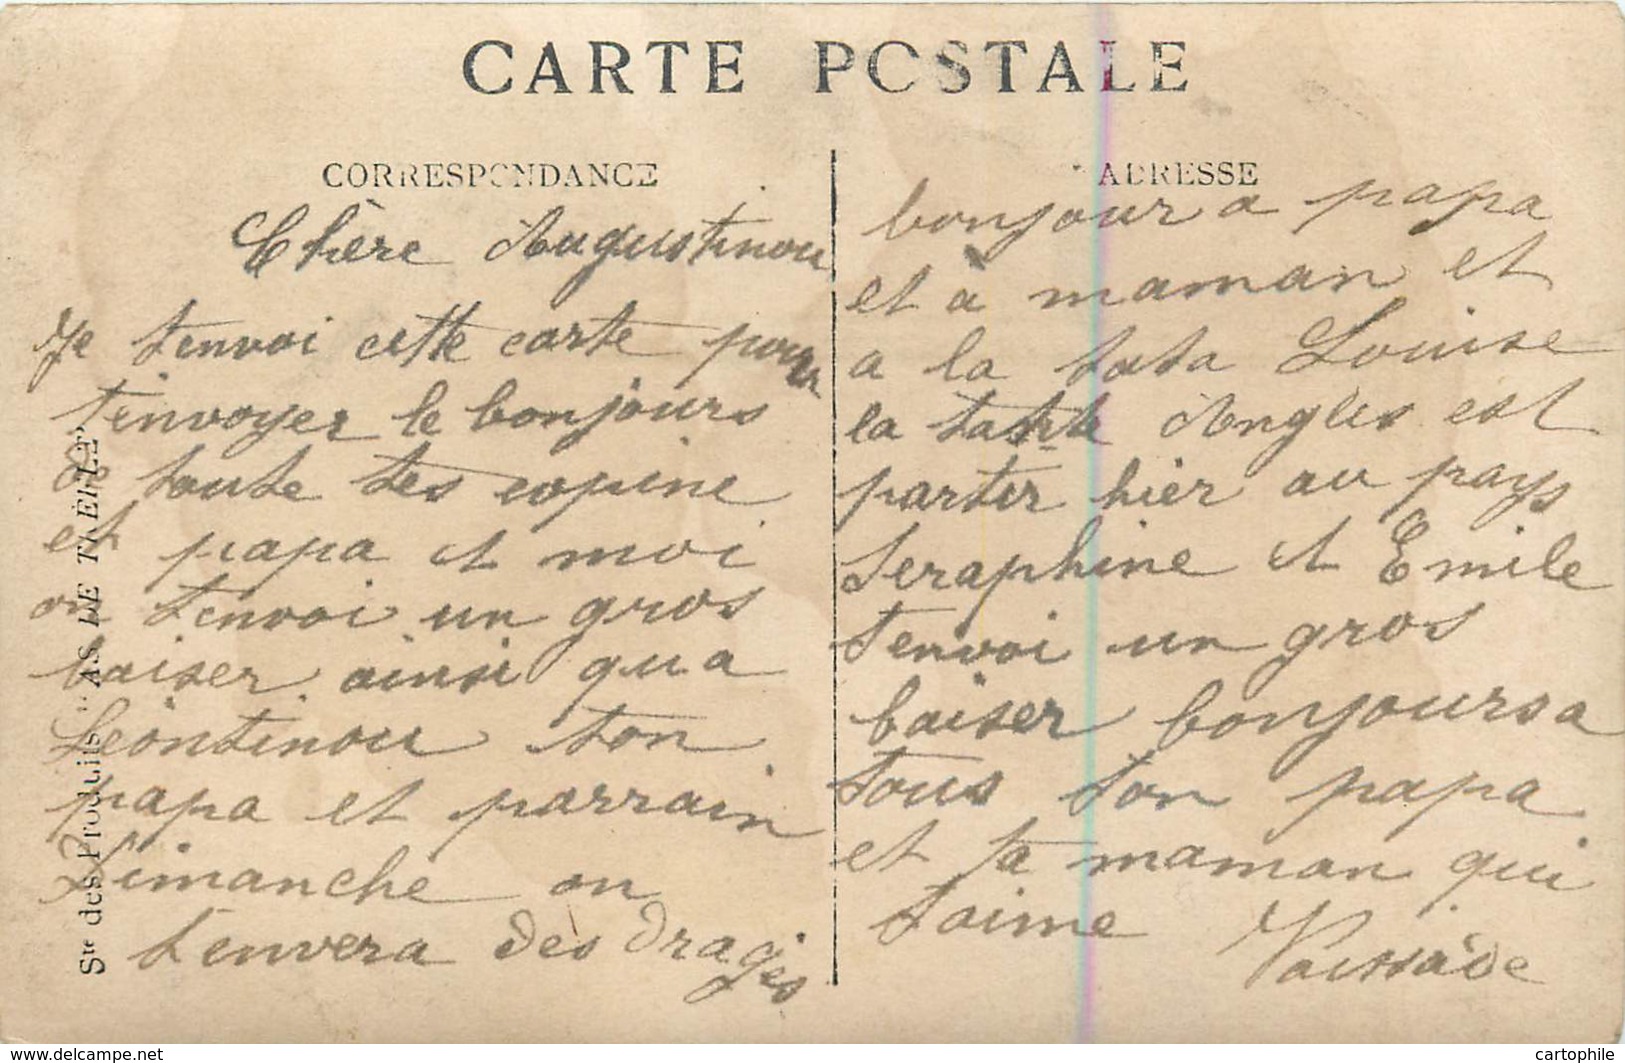 CARTE POSTALE
CORRESPONDANCE
Chère Augustinou
Je t'envoi cette carte pour
t'envoyer le bonjours
de toute tes copine
et papa et moi
on t'envoi un gros
baiser ainsi qu a
Léontinou ton
papa et parrain
Dimanche on
t'enverra des dragés
ADRESSE
bonjour a papa
et à maman et
a la tata Louise
la tante Angles est
partir hier au pays
Seraphine et Emile
t'envoi un gros
baiser bonjours a
tous ton papa
et ta maman qui
t'aime Vaissade
Sté des Produits "AS DE TRÈFLE"
www.delcampe.net
cartophile